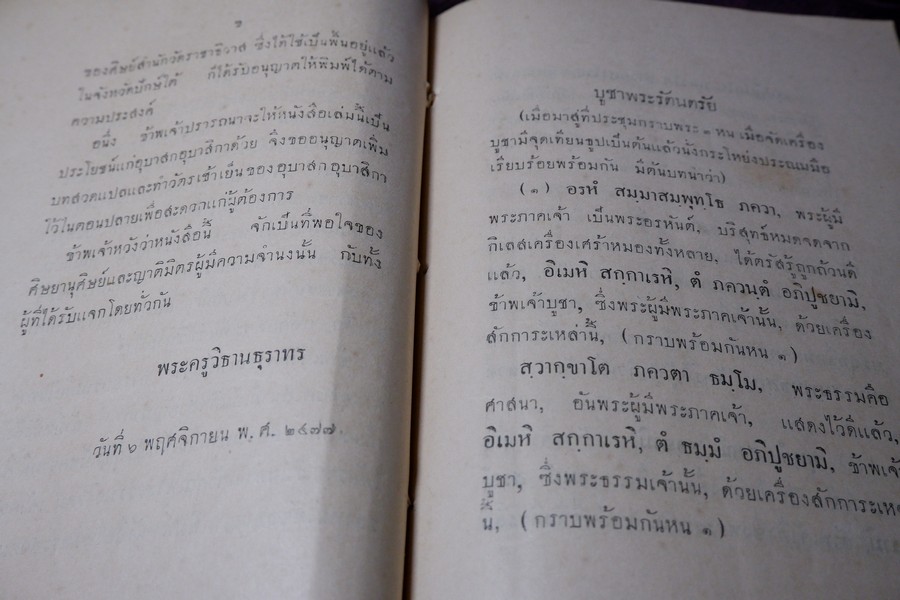 ของศิษย์สำนักวัดราชาธิวาส ซึ่งได้ใช้เป็นพื้นอยู่แล้ว
ในจังหวัดปักษ์ใต้ ก็ได้รับอนุญาตให้พิมพ์ได้ตาม
ความประสงค์
อนึ่ง ข้าพเจ้าปรารถนาจะให้หนังสือเล่มนี้เป็น
ประโยชน์แก่อุบาสกอุบาสิกาด้วย จึงขออนุญาตเพิ่ม
บทสวดแปลและทำวัตรเช้าเย็นของอุบาสกอุบาสิกา
ไว้ในตอนปลายเพื่อสะดวกแก่ผู้ต้องการ
ข้าพเจ้าหวังว่าหนังสือนี้ จักเป็นที่พอใจของ
ศิษยานุศิษย์และญาติมิตรผู้มีความจำนงนั้น กับทั้ง
ผู้ที่ได้รับแจกโดยทั่วกัน
พระครูวิธานธุราทร
วันที่ ๖ พฤศจิกายน พ. ศ. ๒๔๗๗.
บูชาพระรัตนตรัย
(เมื่อมาสู่ที่ประชุมกราบพระ ๓ หน เมื่อจัดเครื่อง
บูชามีจุดเทียนธูปเป็นต้นแล้วนั่งกระโหย่งประณมมือ
เรียบร้อยพร้อมกัน มีต้นบทนำว่า)
(๑) อรหํ สมฺมาสมฺพุทฺโธ ภควา, พระผู้มี
พระภาคเจ้า เป็นพระอรหันต์, บริสุทธ์หมดจดจาก
กิเลสเครื่องเศร้าหมองทั้งหลาย, ได้ตรัสรู้ถูกถ้วนดี
แล้ว, อิเมหิ สกฺกาเรหิ, ตํ ภควนฺตํ อภิปูชยามิ,
ข้าพเจ้าบูชา, ซึ่งพระผู้มีพระภาคเจ้านั้น, ด้วยเครื่อง
สักการะเหล่านี้, (กราบพร้อมกันหน ๑)
สฺวากฺขาโต ภควตา ธมฺโม, พระธรรมคือ
ศาสนา, อันพระผู้มีพระภาคเจ้า, แสดงไว้ดีแล้ว,
อิเมหิ สกฺกาเรหิ, ตํ ธมฺมํ อภิปูชยามิ, ข้าพเจ้
บูชา, ซึ่งพระธรรมเจ้านั้น, ด้วยเครื่องสักการะเหล่
นี้, (กราบพร้อมกันหน ๑)